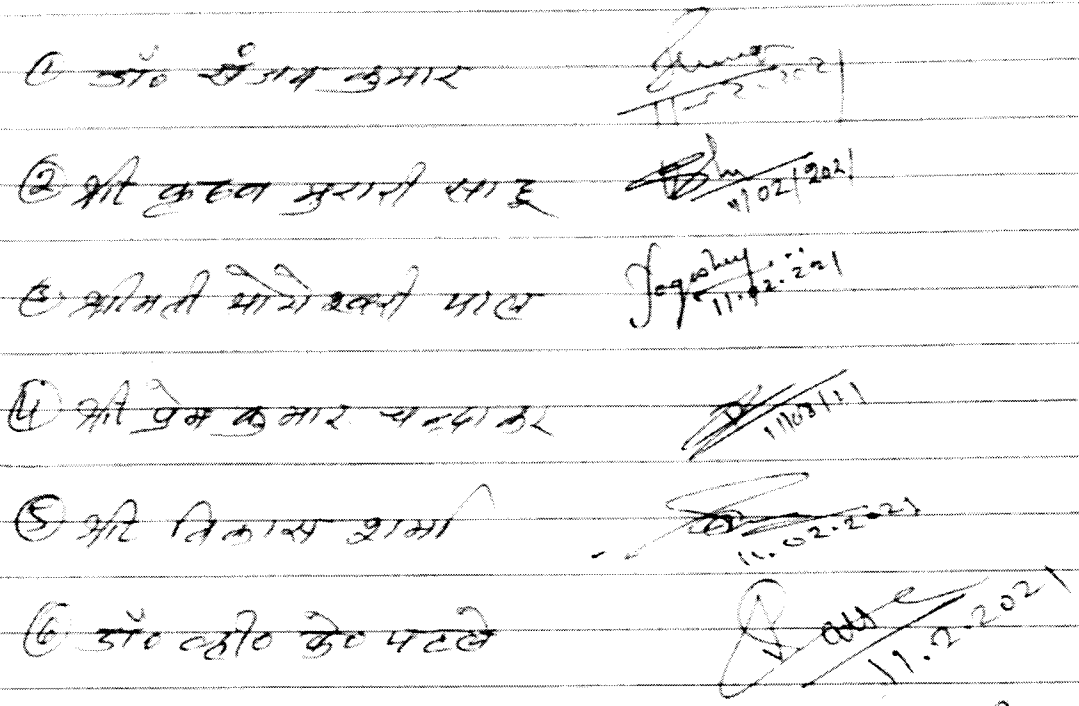 ① डॉ० संजय कुमार 11-02-2021
② श्री कृष्ण मुरारी साहू 11/02/2021
③ श्रीमती योगेश्वरी पाल 11.02.2021
④ श्री प्रेम कुमार चन्द्राकर
⑤ श्री विकास शर्मा 11.02.2021
⑥ डॉ० व्ही० के० पटले 11.2.2021